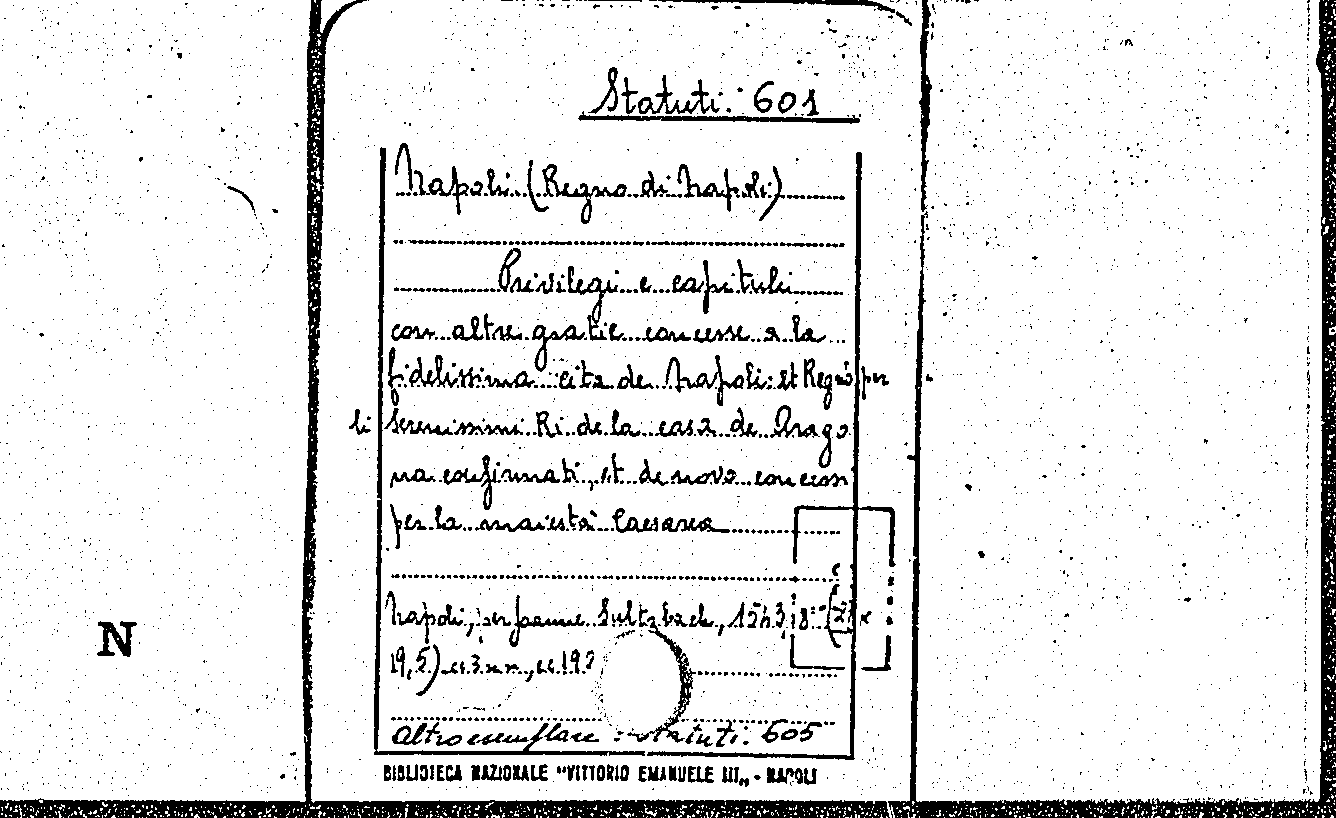 Statuti: 601
Napoli (Regno di Napoli)
Privilegi e capituli
con altre gratie concesse a la
fidelissima cita de Napoli: et Regno per
li Serenissimi Ri de la casa de Arago
na confirmati, et de novo concessi
per la maiestà Caesarea
Napoli, per Joanne Sultzbach, 1543, 8° (27 x
19,5) cc 3 nn, cc 192
N
Altro esemplare: Statuti: 605
BIBLIOTECA NAZIONALE "VITTORIO EMANUELE III„ - NAPOLI